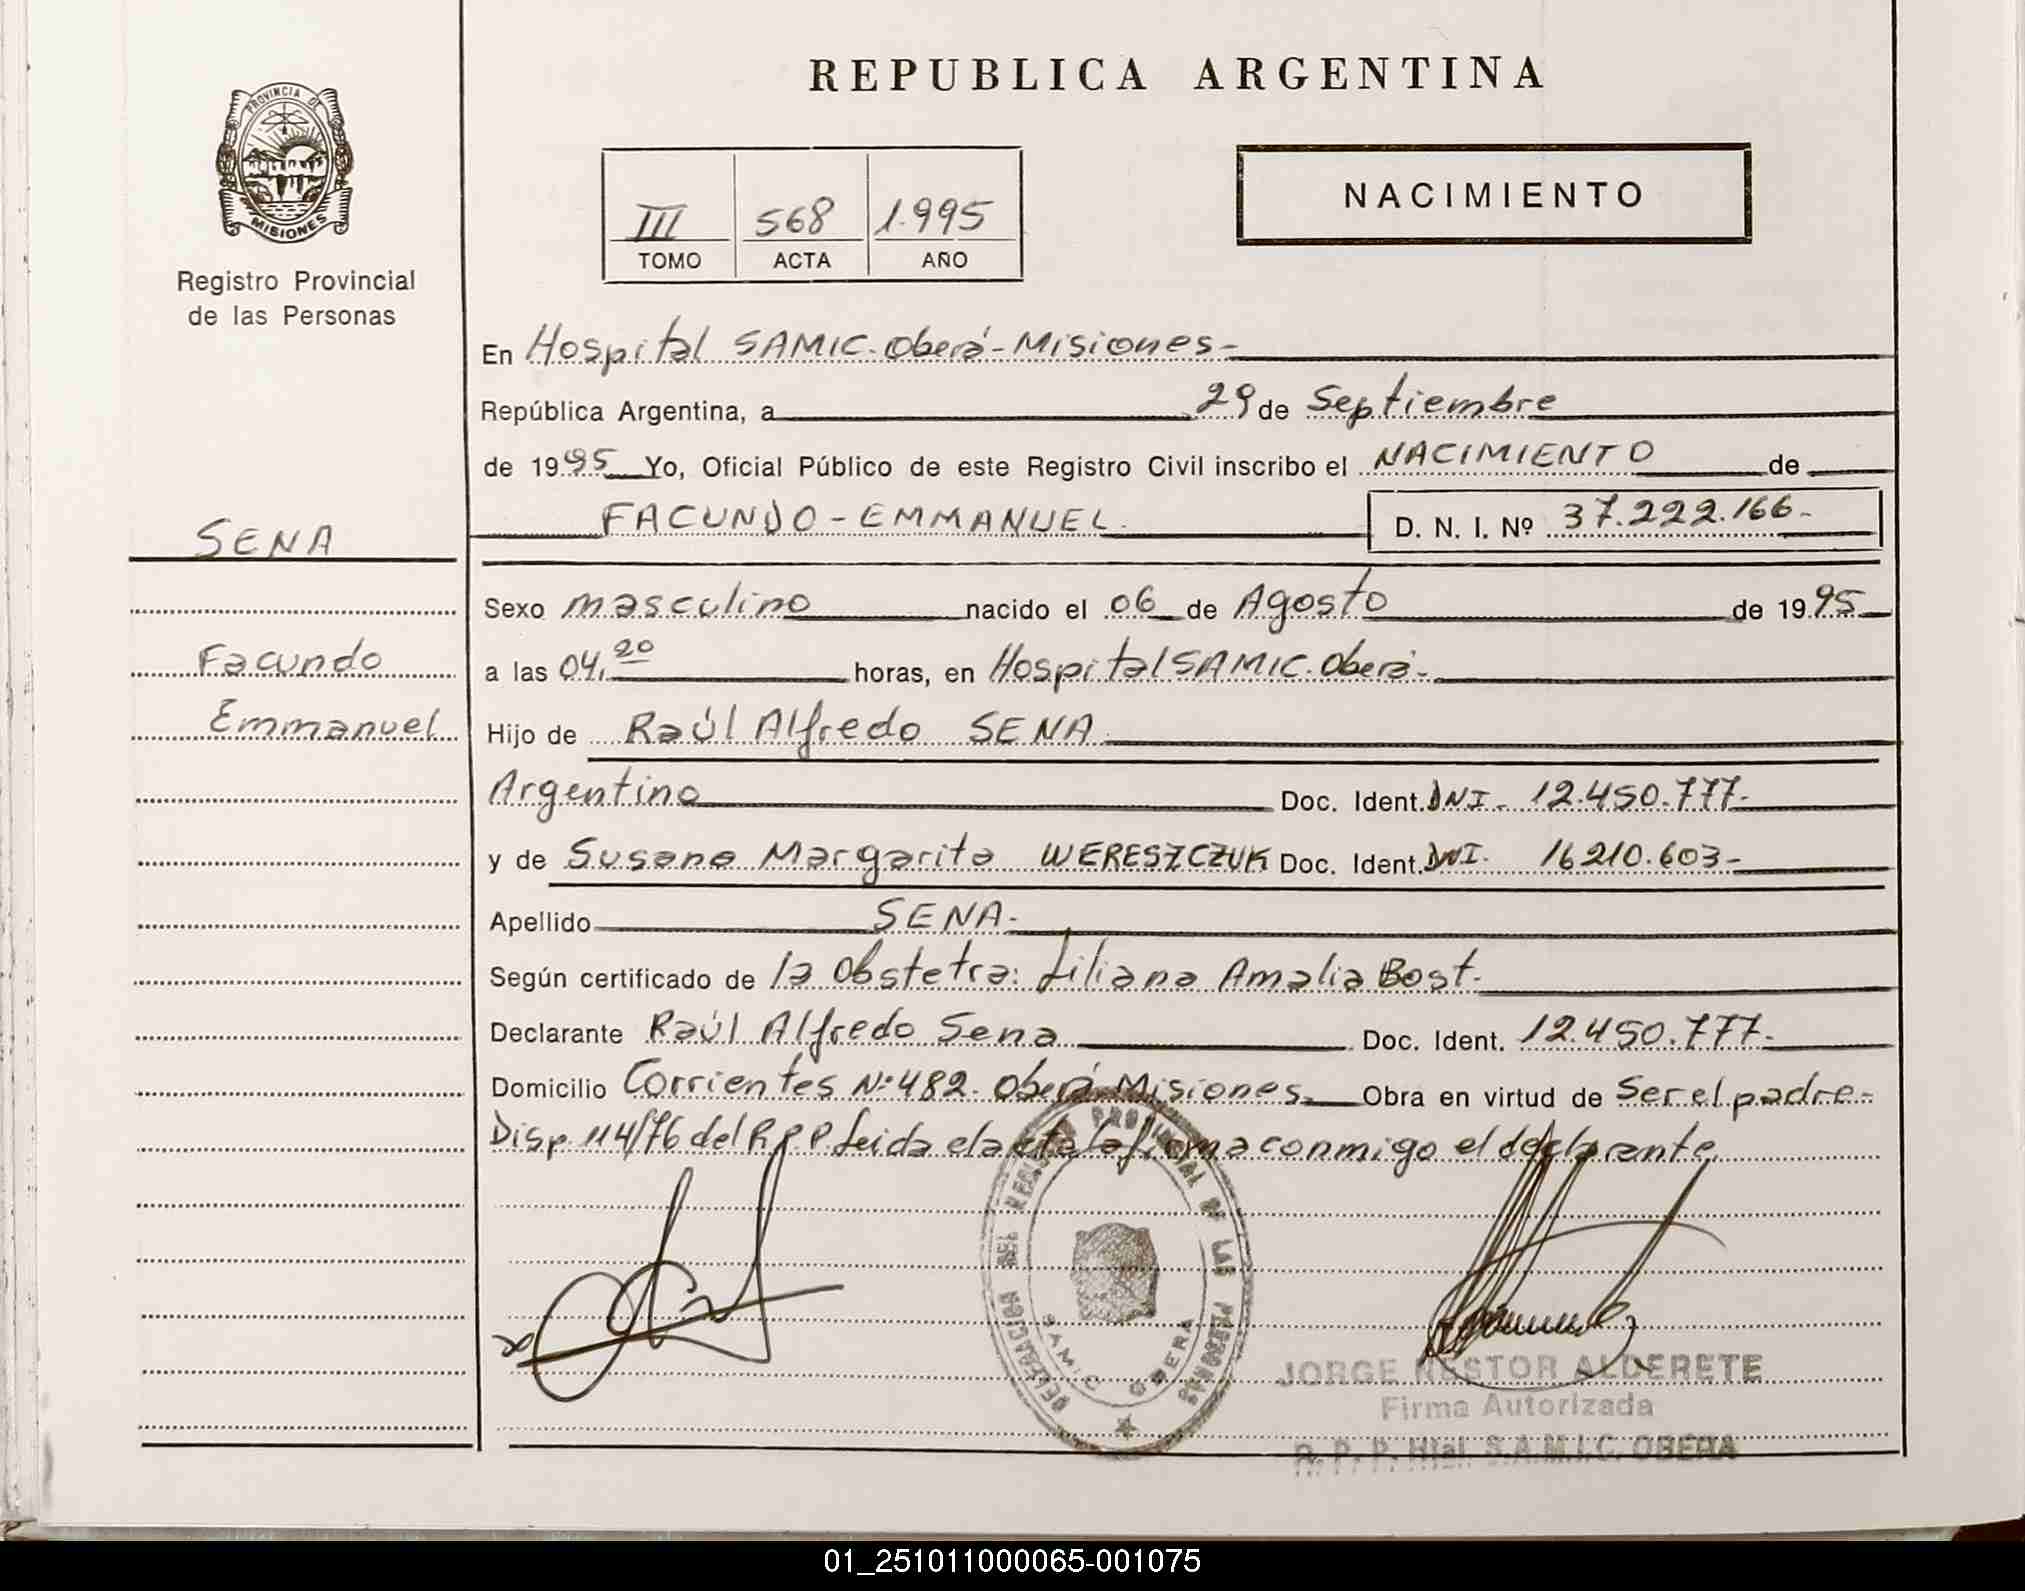 REPUBLICA ARGENTINA
PROVINCIA DE
MISIONES
Registro Provincial
de las Personas
III 568 1.995
TOMO ACTA AÑO
NACIMIENTO
En Hospital SAMIC. Oberá - Misiones -
República Argentina, a 29 de Septiembre
de 1995 Yo, Oficial Público de este Registro Civil inscribo el NACIMIENTO de
FACUNDO - EMMANUEL. D. N. I. Nº 37.222.166-
SENA
Facundo
Emmanuel
Sexo masculino nacido el 06 de Agosto de 1995
a las 04,20 horas, en Hospital SAMIC. Oberá -
Hijo de Raúl Alfredo SENA
Argentino Doc. Ident. DNI - 12.450.777-
y de Susana Margarita WERESZCZUK Doc. Ident. DNI. 16210.603-
Apellido SENA-
Según certificado de la Obstetra: Liliana Amalia Bost.
Declarante Raúl Alfredo Sena Doc. Ident. 12.450.777-
Domicilio Corrientes Nº 482. Oberá Misiones Obra en virtud de Ser el padre-
Disp. 114/76 del R.P.P. Leida el acta la firma conmigo el declarante
DELEGACION DEL REGISTRO PROVINCIAL DE LAS PERSONAS
SAMIC OBERA
JORGE NESTOR ALDERETE
Firma Autorizada
R. P. P. Htal. S.A.M.I.C. OBERA
01_251011000065-001075